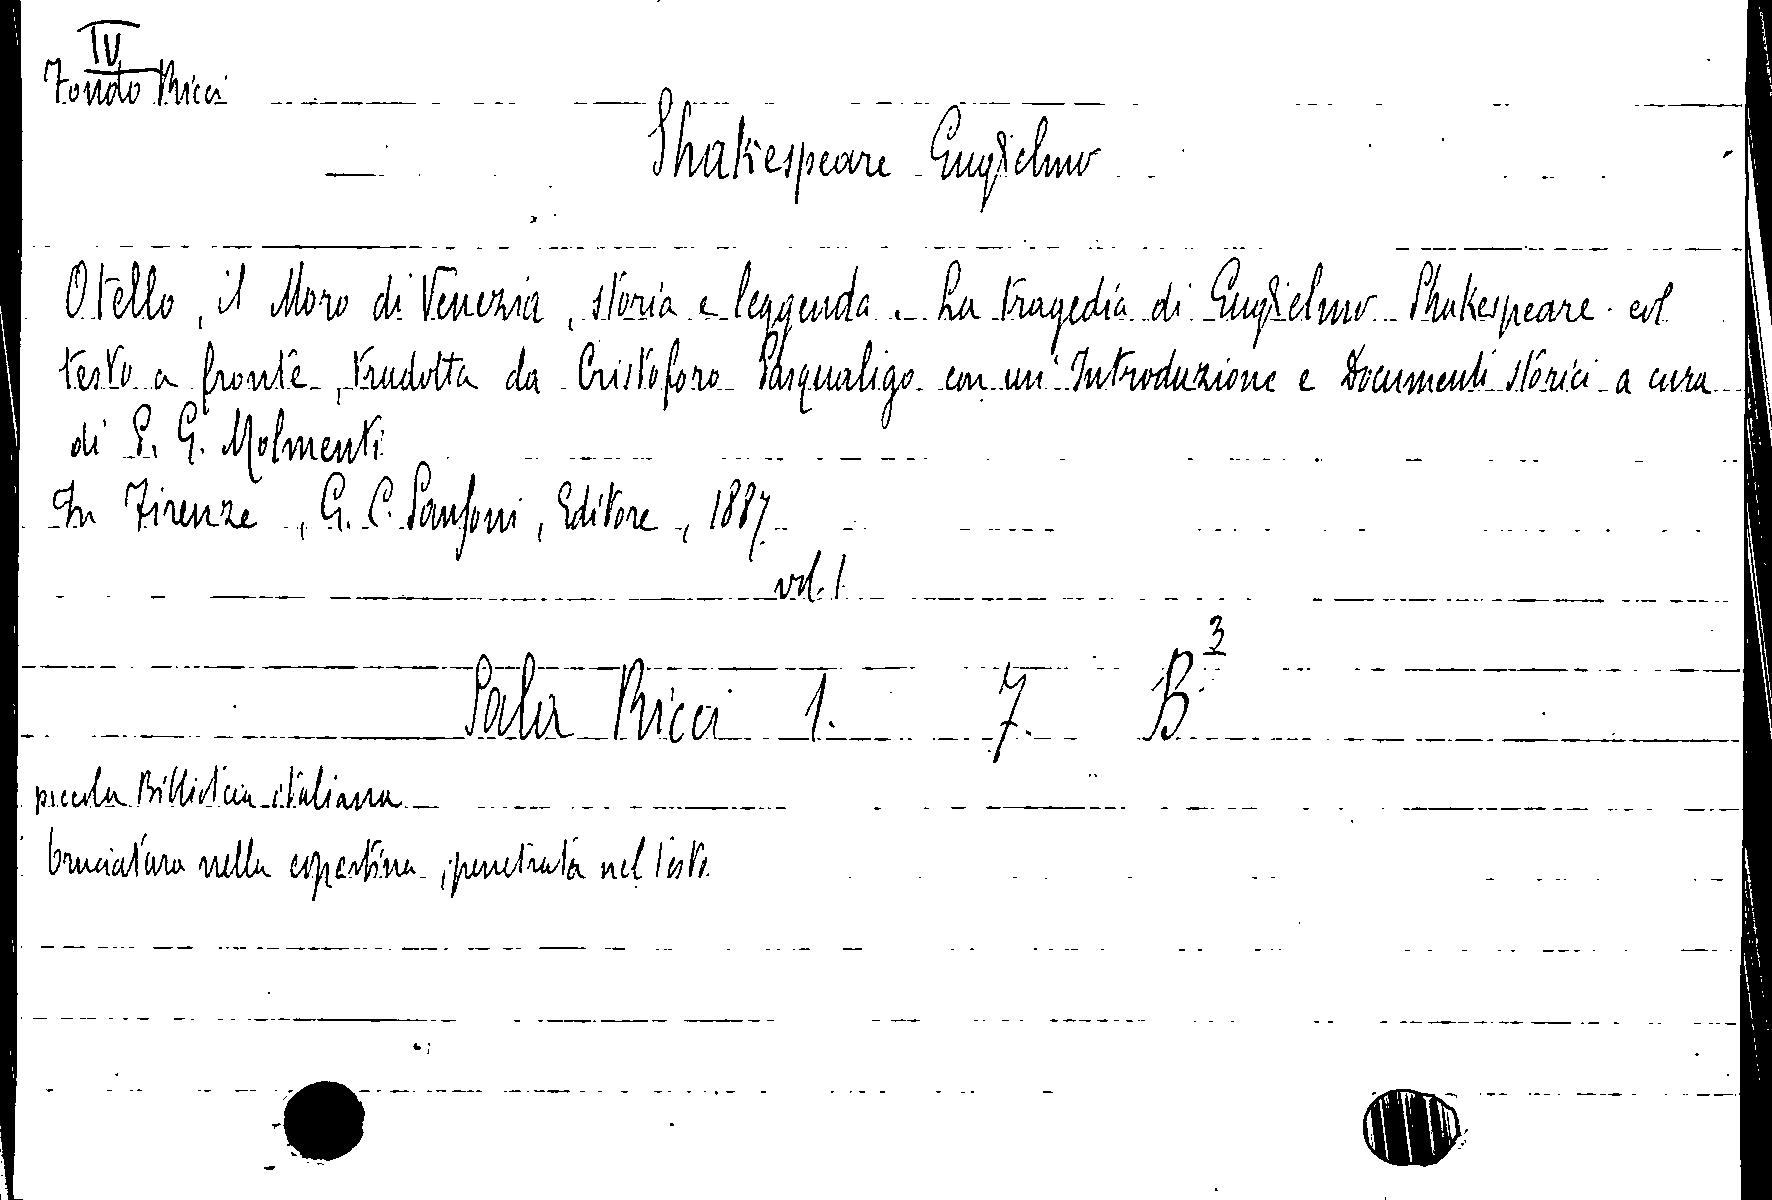 IV
Fondo Ricci
Shakespeare Guglielmo
Otello, il Moro di Venezia, storia e leggenda. La tragedia di Guglielmo Shakespeare col
testo a fronte, tradotta da Cristoforo Pasqualigo con un'Introduzione e Documenti storici a cura
di P. G. Molmenti
In Firenze, G. C. Sansoni, Editore, 1887
vol. 1
Sala Ricci 1. 7. B³
piccola Biblioteca italiana
bruciatura nella copertina, penetrata nel testo